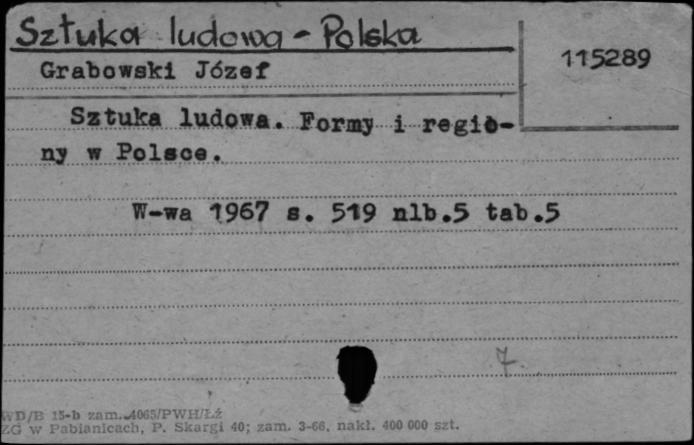 Sztuka ludowa - Polska
115289
Grabowski Józef
Sztuka ludowa. Formy i regio-
ny w Polsce.
W-wa 1967 s. 519 nlb.5 tab.5
7
WD/B 15-b zam. 4065/PWH/Łź
ZG w Pabianicach, P. Skargi 40; zam. 3-66, nakł. 400 000 szt.